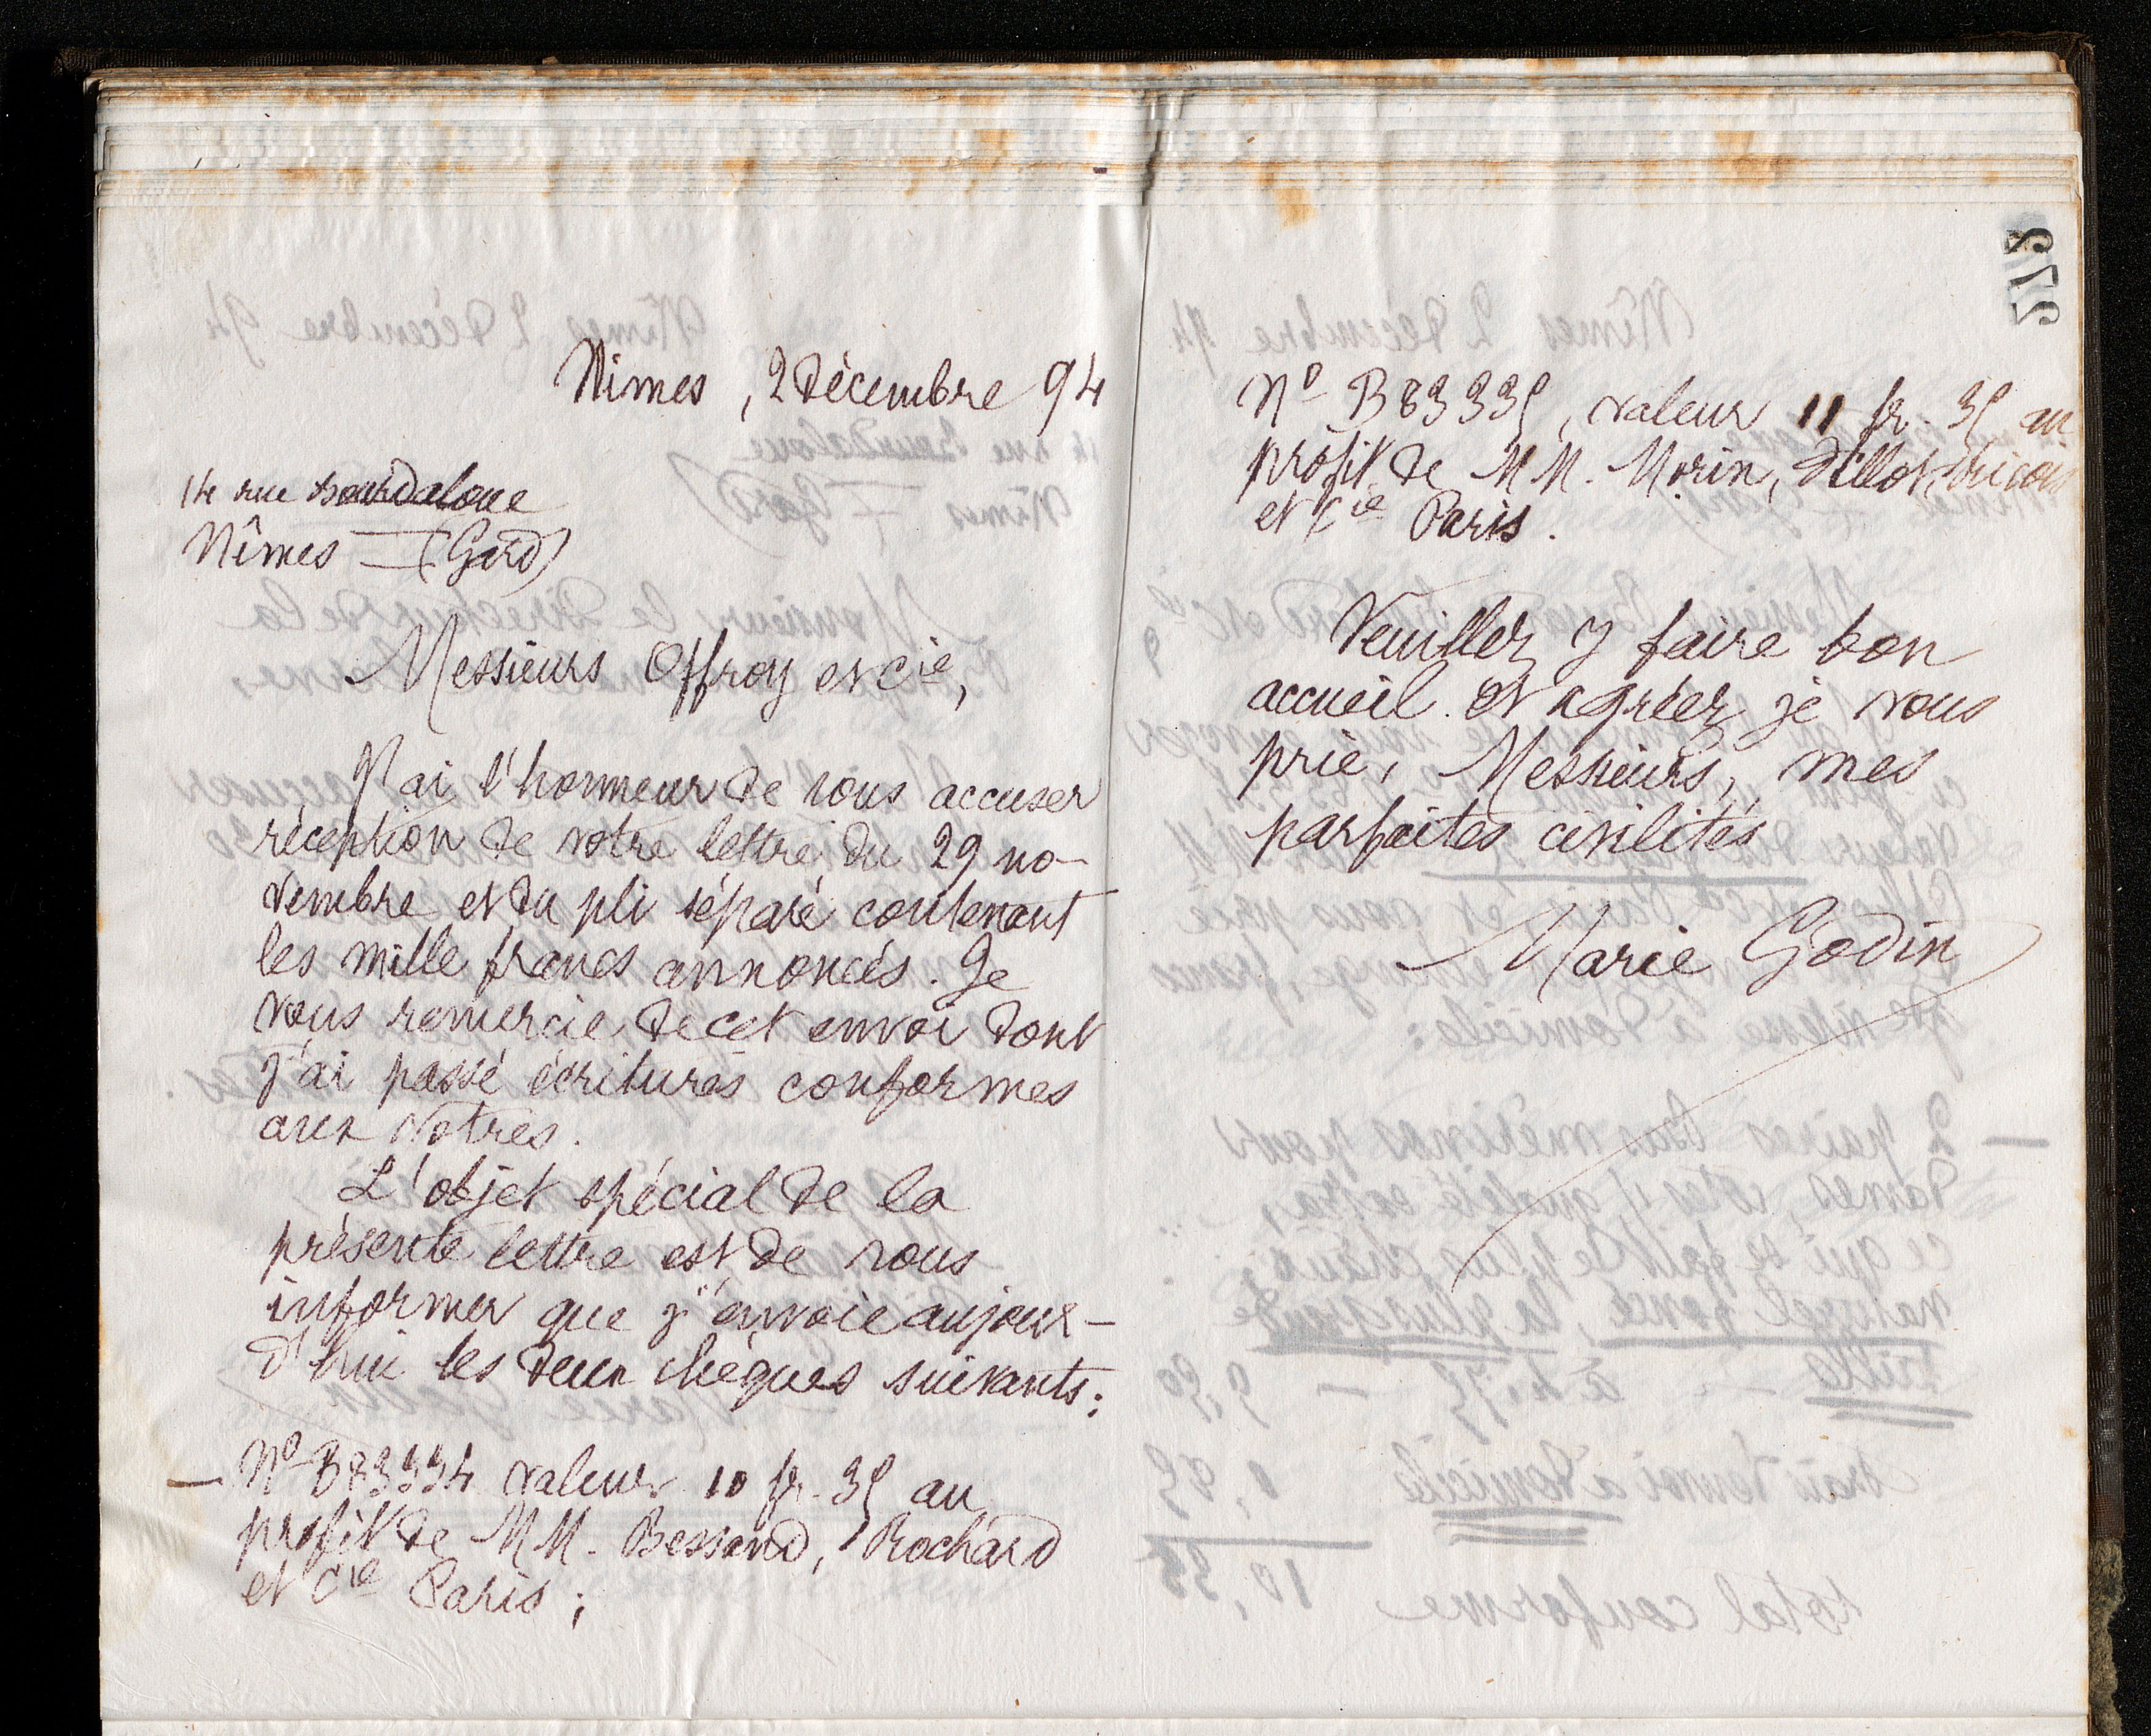 Nîmes, 2 décembre 94
14 rue Bourdaloue
Nîmes — (Gard)
Messieurs Offroy et Cie,
J'ai l'honneur de vous accuser
réception de votre lettre du 29 no-
vembre et du pli séparé contenant
les mille francs annoncés. Je
vous remercie de cet envoi dont
j'ai passé écritures conformes
aux vôtres.
L'objet spécial de la
présente lettre est de vous
informer que j'envoie aujour-
d'hui les deux chèques suivants:
— No B83334 valeur 10 fr. 35 au
profit de MM. Bessand, Rochard
et Cie Paris;
578
No B83335, valeur 11 fr. 35 au
profit de MM. Morin,
et Cie Paris.
Veuillez y faire bon
accueil et agréer, je vous
prie, Messieurs, mes
parfaites civilités
Marie Godin